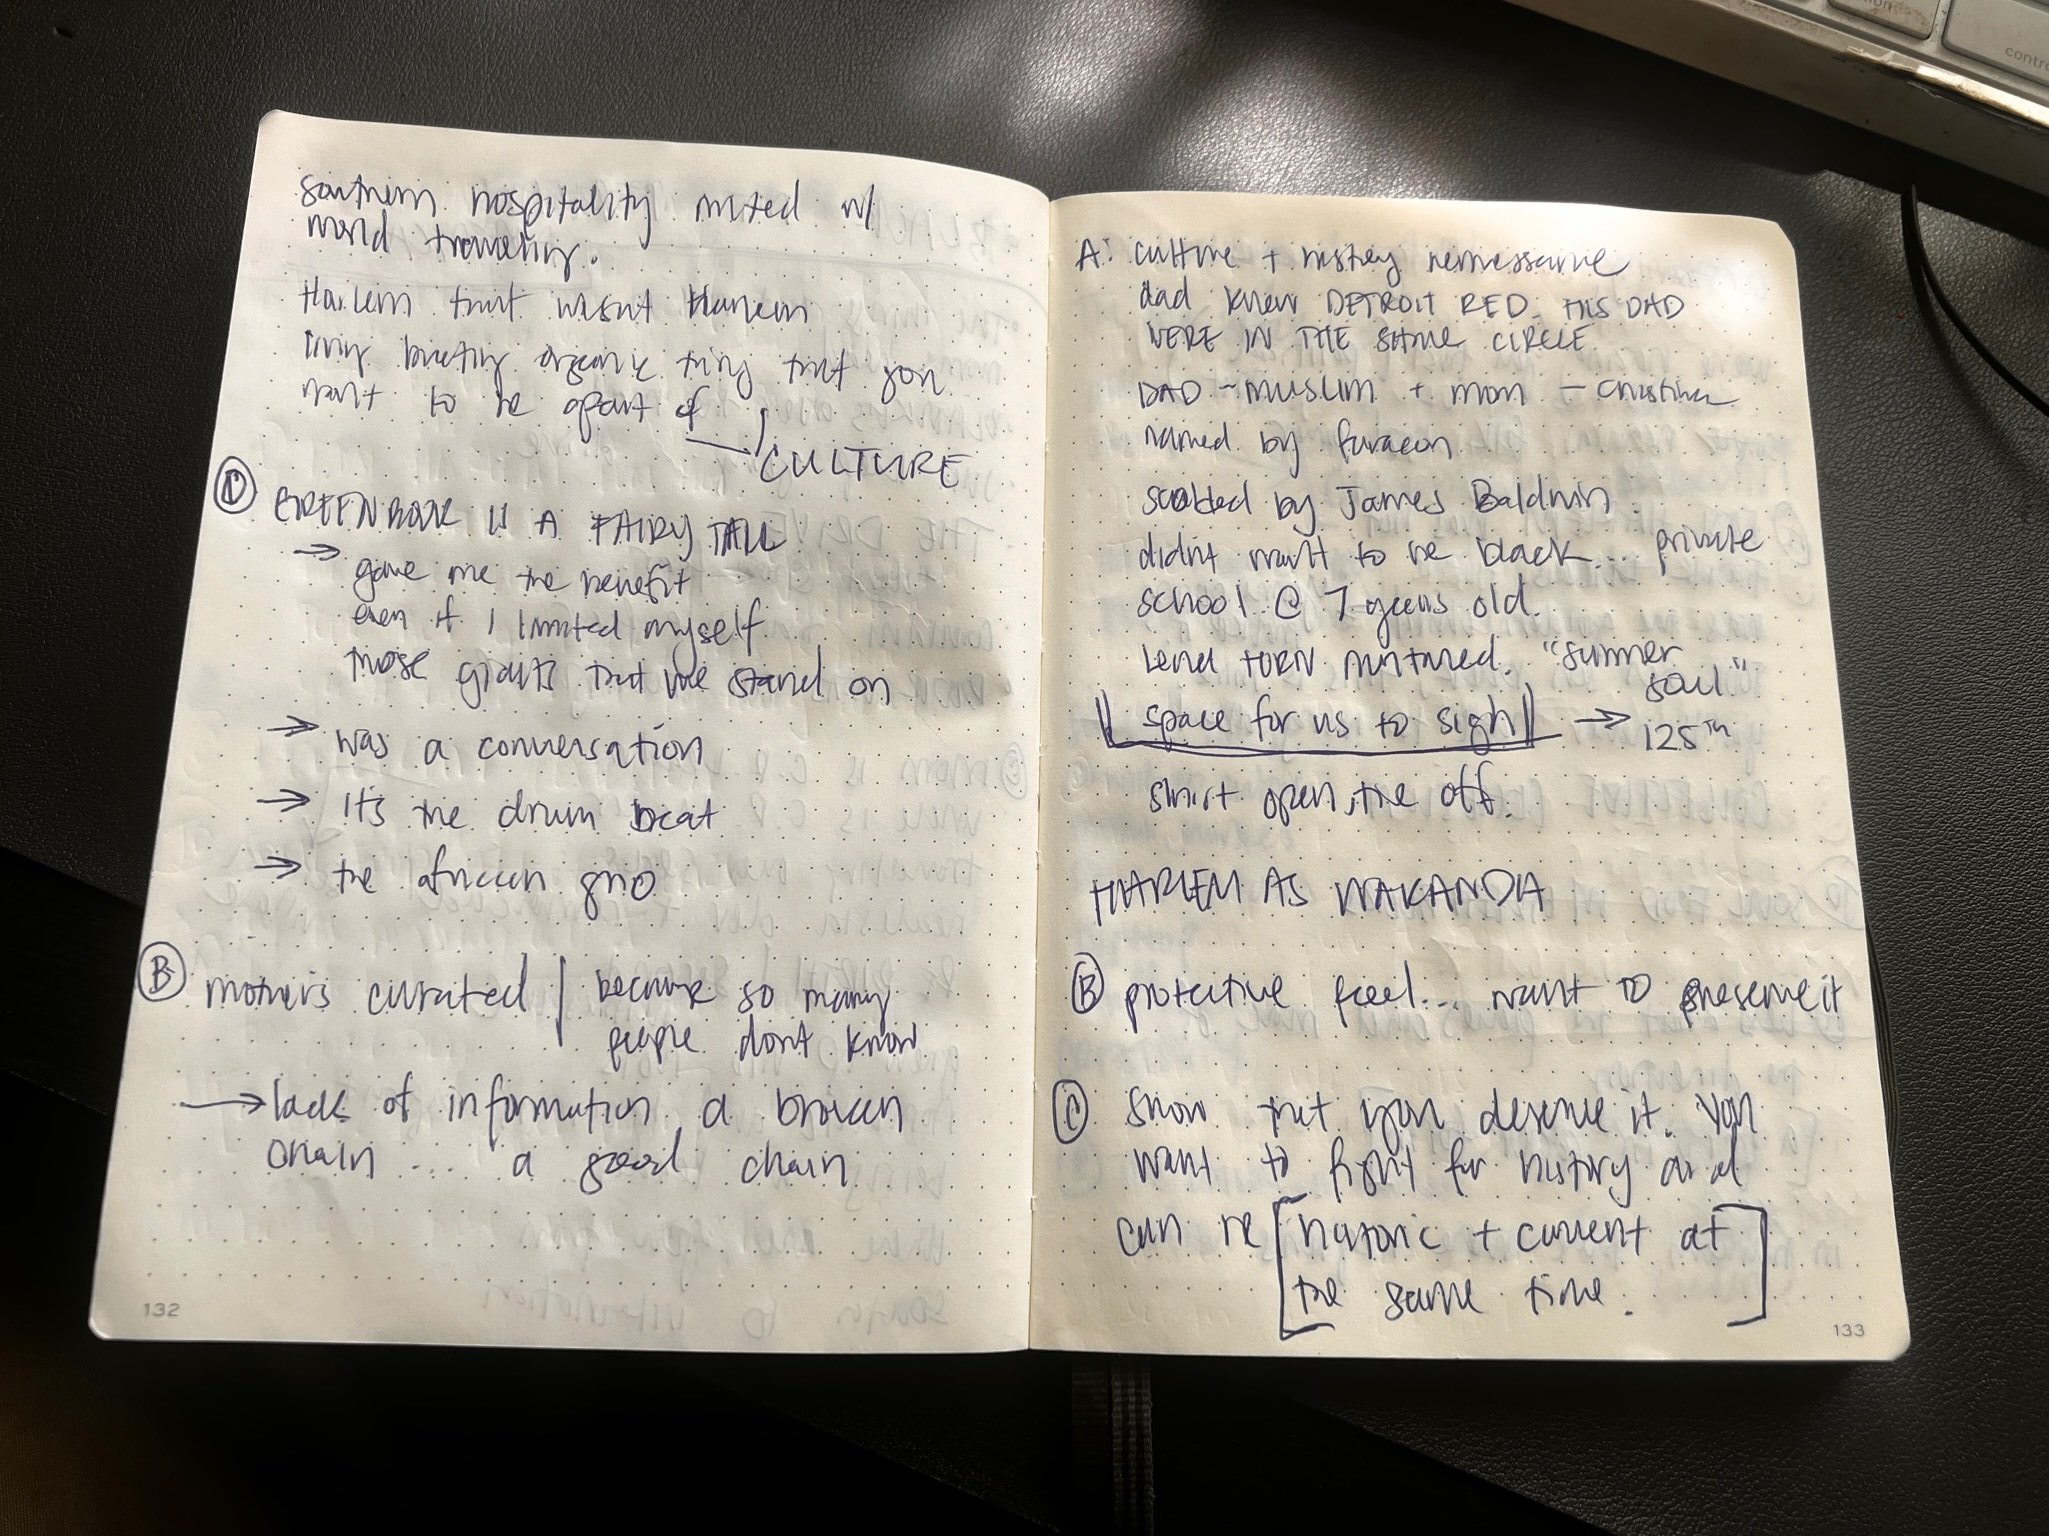 southern hospitality mixed w/
world traveling.
Harlem that wasnt Harlem
living breathing organic thing that you
want to be apart of
CULTURE
D GREENBOOK IS A FAIRY TALE
→ gave me the benefit
even if I limited myself
those giants that we stand on
→ was a conversation
→ its the drum beat
→ the african grio
B mothers curated | because so many
people dont know
→ lack of information a broken
chain ... a good chain
132
A: culture + history
dad knew DETROIT RED. HIS DAD
WERE IN THE SAME CIRCLE.
DAD - muslim + mom - christian
named by
scolded by James Baldwin.
didnt want to be black... private
school @ 7 years old.
nurtured. "summer
soul"
space for us to sigh → 125th
shirt open, tie off.
HARLEM AS WAKANDA
B protective feel... want to preserve it
C show that you deserve it. you
want to fight for history and
can be [historic + current at
the same time.]
133
control